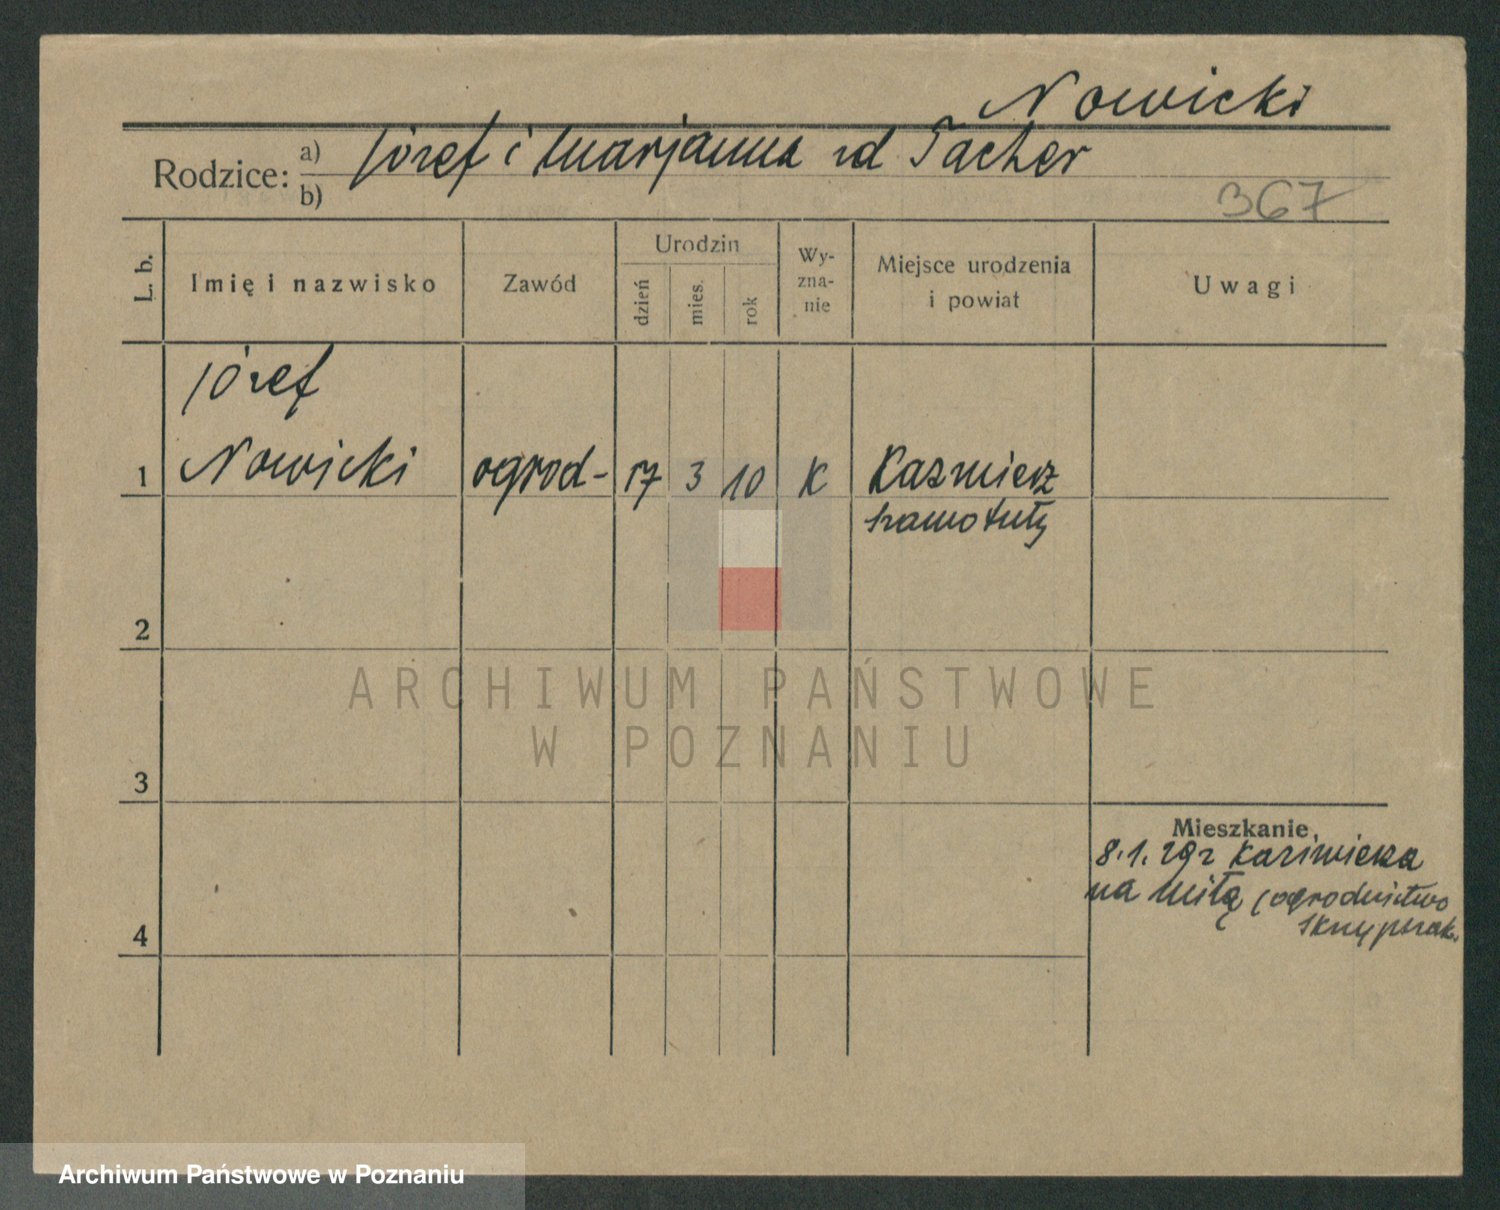 Nowicki
Rodzice: a) Józef i Marjanna zd Tacher
b)
367
L. b.
Imię i nazwisko
Zawód
Urodzin
dzień
mies.
rok
Wy-
zna-
nie
Miejsce urodzenia
i powiat
Uwagi
Józef
1 Nowicki ogrod- 17 3 10 K Kazmierz
Szamotuły
2
ARCHIWUM PAŃSTWOWE
W POZNANIU
3
Mieszkanie
8.1. Kazimierza
na Miłą (ogrodnictwo
4
Archiwum Państwowe w Poznaniu